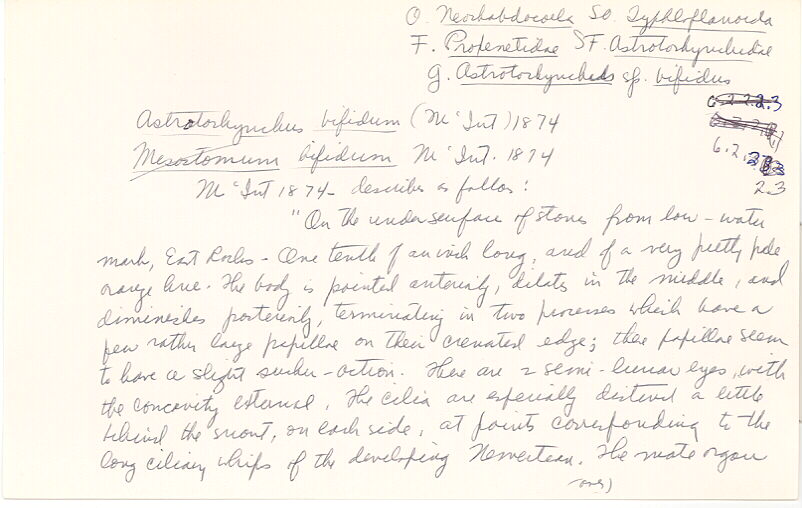 O. Neorhabdocoela SO. Typhloplanoida
F. Proxenetidae SF. Astrotorhynchidae
g. Astrotorhynchus sp. bifidus
6.2.2.2.3
Astrotorhynchus bifidum (M'Int) 1874
Mesostomum bifidum M'Int. 1874
6.2.
2.3
M'Int 1874 - describes as follos:
"On the under surface of stones from low-water
mark, East Rocks - One tenth of an inch long, and of a very pretty pale
orange hue. The body is pointed anteriorly, dilates in the middle, and
diminishes posteriorly, terminating in two processes which have a
few rather large papillae on their crenated edge; these papillae seem
to have a slight sucker-action. There are 2 semi-lunar eyes, with
the concavity external. The cilia are especially distinct a little
behind the snout, on each side, at points corresponding to the
long ciliary whips of the developing Nemertean. The mate organ
(over)